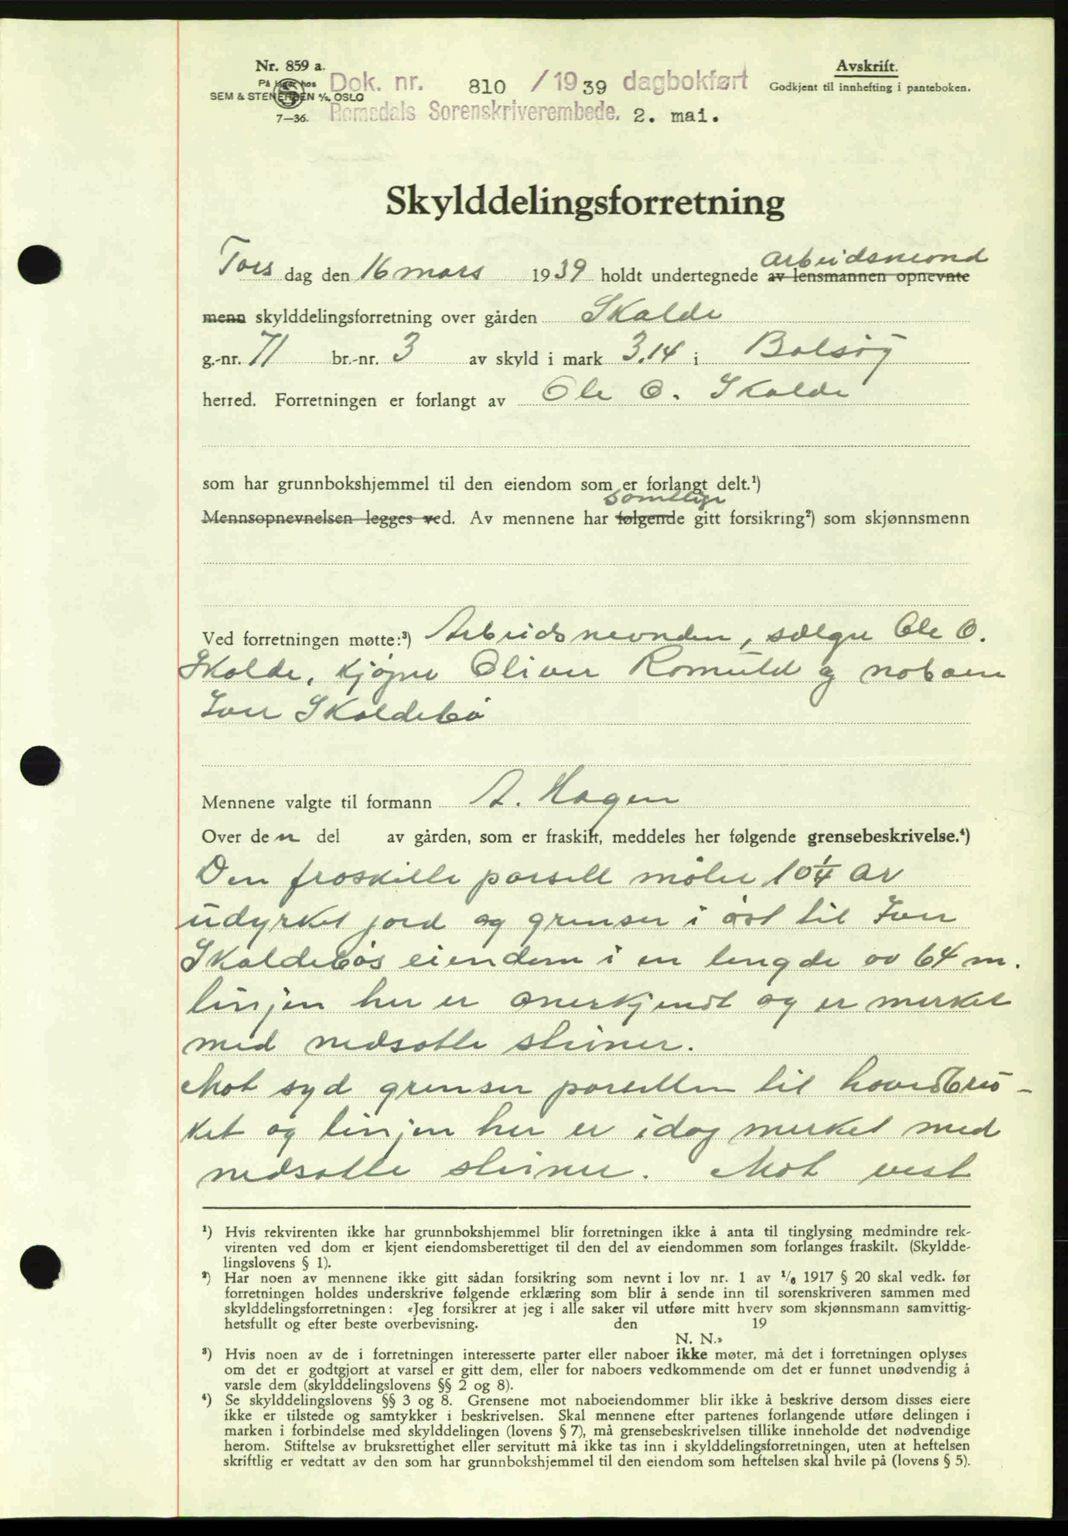 Nr. 859 a.
På lager hos
SEM & STENERSEN A/S, OSLO
7—36.
Dok. nr. 810 / 1939 dagbokført
Romsdals Sorenskriverembede. 2. mai.
Avskrift.
Godkjent til innhefting i panteboken.
Skylddelingsforretning
Tors dag den 16 mars 1939 holdt undertegnede av lensmannen opnevnte arbeidsnevnd
menn skylddelingsforretning over gården Skalde
g.-nr. 71 br.-nr. 3 av skyld i mark 3,14 i Bolsøy
herred. Forretningen er forlangt av Ole O. Skalde
som har grunnbokshjemmel til den eiendom som er forlangt delt.¹)
Mennsopnevnelsen legges ved. Av mennene har følgende samtlige gitt forsikring²) som skjønnsmenn
Ved forretningen møtte:³) Arbeidsnevnden, selger Ole O.
Skalde, kjøper Oliver Romuld og naboen
Iver Skaldebø
Mennene valgte til formann A. Hagen
Over den del av gården, som er fraskilt, meddeles her følgende grensebeskrivelse.⁴)
Den fraskilte parsell måler 10 1/4 ar
udyrket jord og grenser i øst til Iver
Skaldebøs eiendom i en lengde av 64 m.
linjen her er anerkjendt og er merket
med nedsatte steiner.
Mot syd grenser parsellen til hovedbrü-
ket og linjen her er idag merket med
nedsatte steiner. Mot vest
¹) Hvis rekvirenten ikke har grunnbokshjemmel blir forretningen ikke å anta til tinglysing medmindre rek-
virenten ved dom er kjent eiendomsberettiget til den del av eiendommen som forlanges fraskilt. (Skyldde-
lingslovens § 1).
²) Har noen av mennene ikke gitt sådan forsikring som nevnt i lov nr. 1 av 1/6 1917 § 20 skal vedk. før
forretningen holdes underskrive følgende erklæring som blir å sende inn til sorenskriveren sammen med
skylddelingsforretningen: «Jeg forsikrer at jeg i alle saker vil utføre mitt hverv som skjønnsmann samvittig-
hetsfullt og efter beste overbevisning. den 19
N. N.»
³) Hvis noen av de i forretningen interesserte parter eller naboer ikke møter, må det i forretningen oplyses
om det er godtgjort at varsel er gitt dem, eller for naboers vedkommende om det er funnet unødvendig å
varsle dem (skylddelingslovens §§ 2 og 8).
⁴) Se skylddelingslovens §§ 3 og 8. Grensene mot naboeiendommer blir ikke å beskrive dersom disses eiere
ikke er tilstede og samtykker i beskrivelsen. Skal mennene efter partenes forlangende utføre delingen i
marken i forbindelse med skylddelingen (lovens § 7), må grensebeskrivelsen tillike inneholde det nødvendige
herom. Stiftelse av bruksrettighet eller servitutt må ikke tas inn i skylddelingsforretningen, uten at heftelsen
skriftlig er vedtatt av den som har grunnbokshjemmel til den eiendom som heftelsen skal hvile på (lovens § 5).